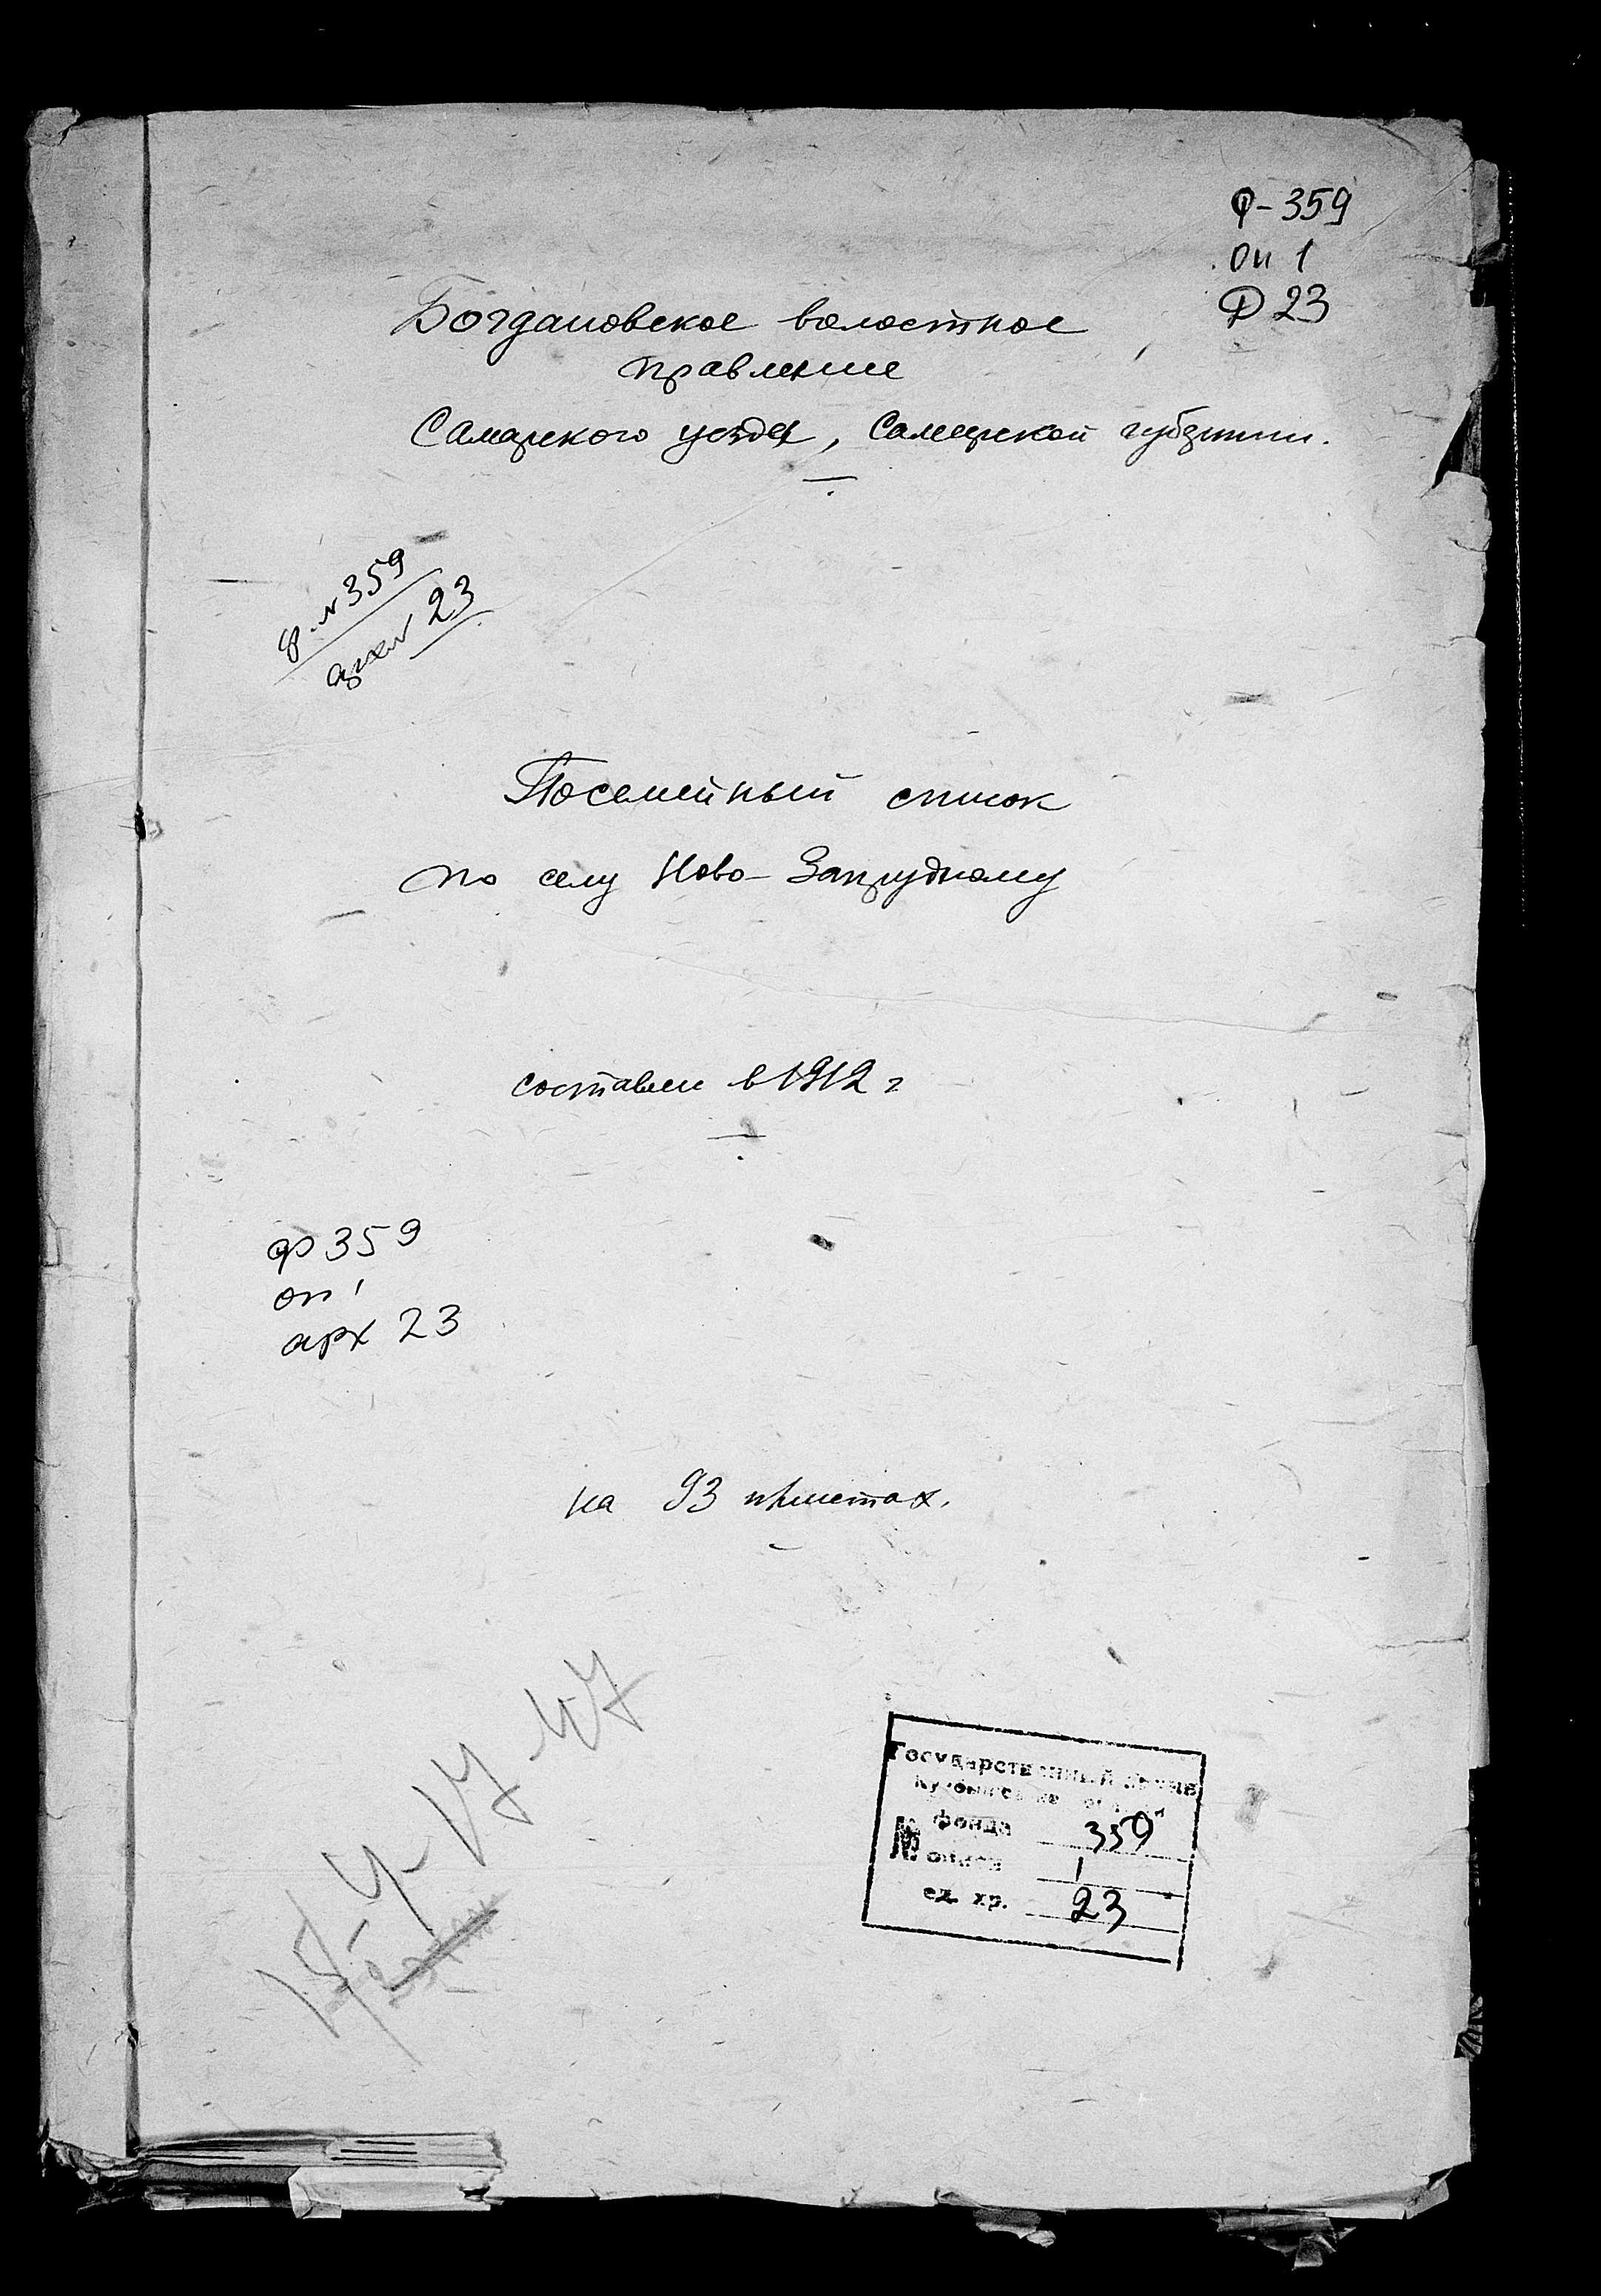 Ф-359
Оп 1
Д 23
Богдановское волостное
правление
Самарского уезда, Самарской губернии.
ф. № 359
арх № 23
Посемейный список
по селу Ново-Запрудному
составлен в 1912 г
ф 359
оп 1
арх 23
на 93 листах.
Государственный архив
Куйбышевской области
№ фонда 359
№ описи 1
ед. хр. 23